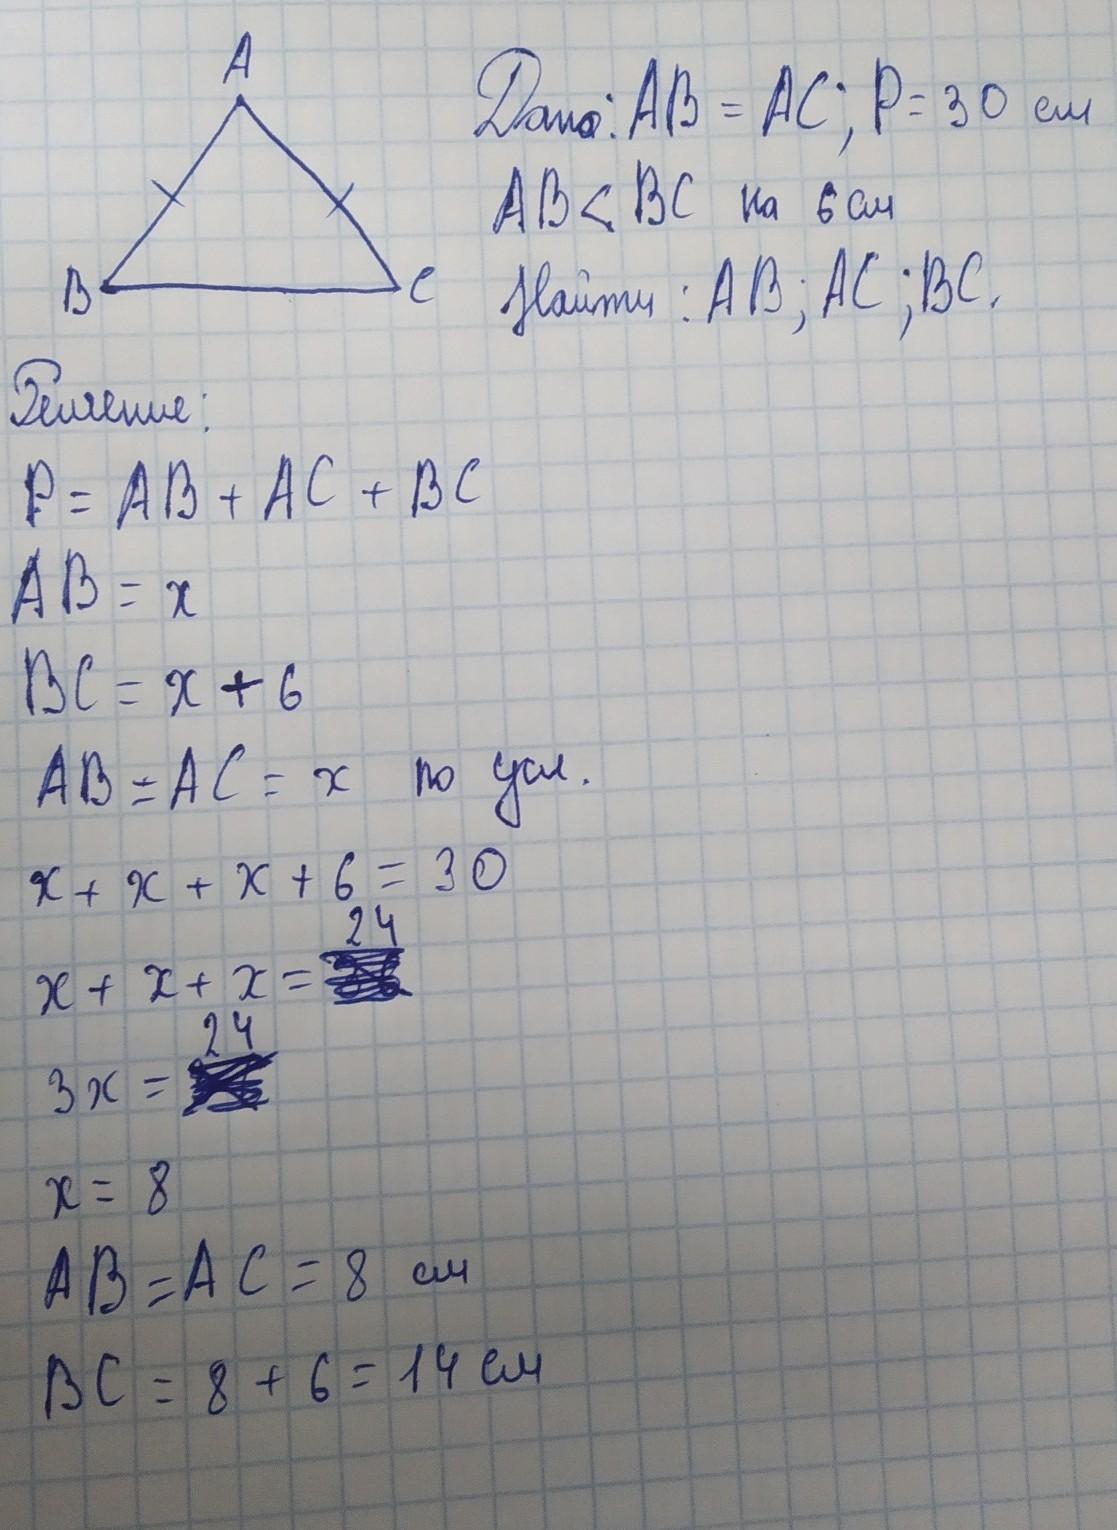 A
B
C
Дано: AB = AC; P = 30 см
AB < BC на 6 см
Найти: AB; AC; BC.
Решение:
P = AB + AC + BC
AB = x
BC = x + 6
AB = AC = x по усл.
x + x + x + 6 = 30
x + x + x = 24
3x = 24
x = 8
AB = AC = 8 см
BC = 8 + 6 = 14 см